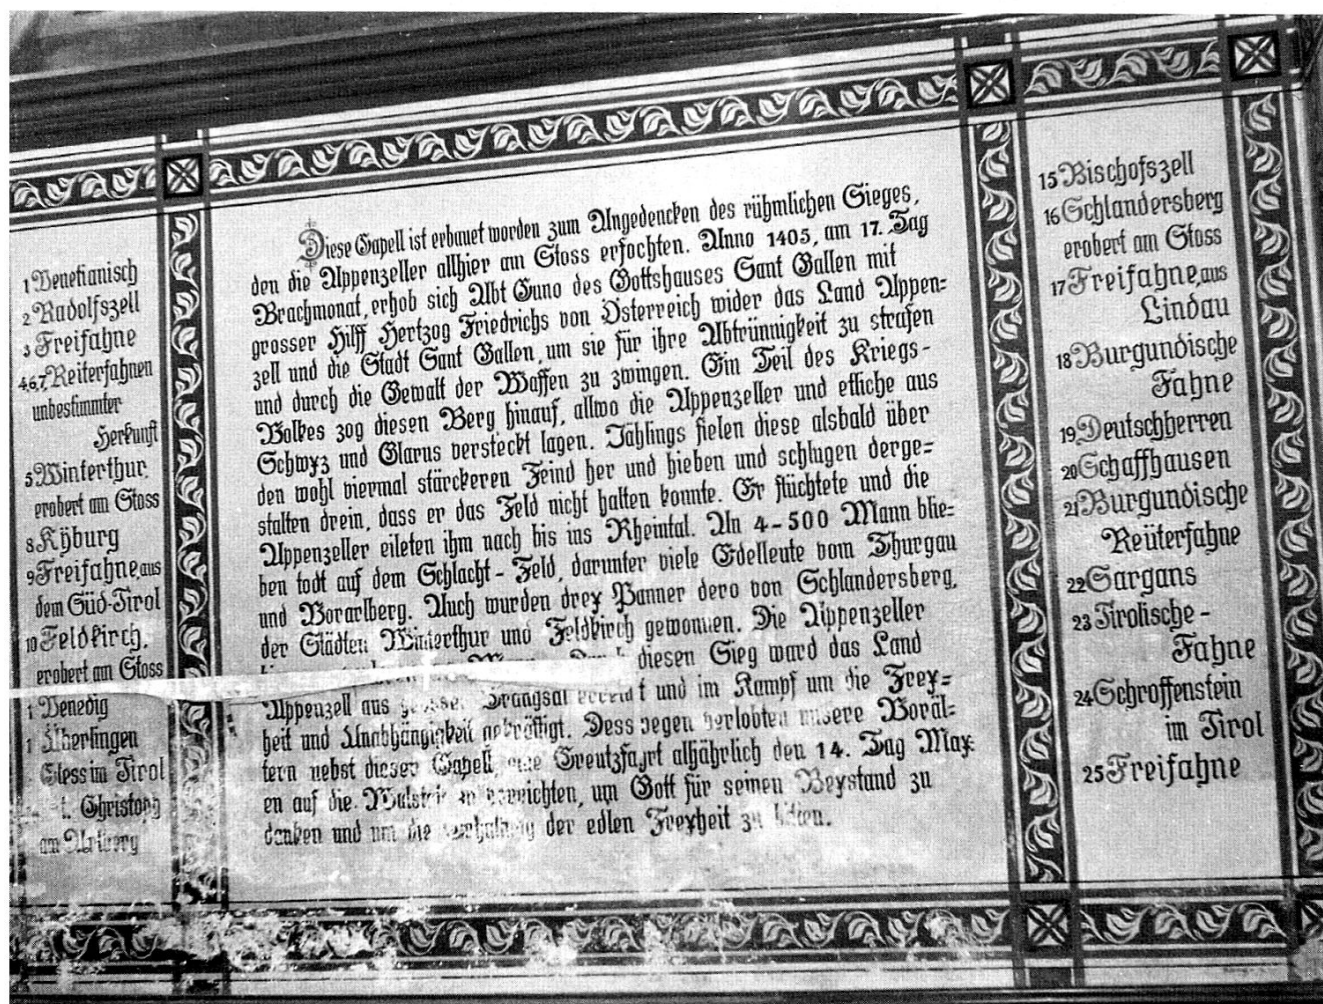 1 Venetianisch
2 Radolfszell
3 Freifahne
4,6,7, Reiterfahnen
unbestimmter
Herkunft
5 Winterthur,
erobert am Stoss
8 Kÿburg
9 Freifahne, aus
dem Süd-Tirol
10 Feldkirch,
erobert am Stoss
Venedig
Überlingen
im Tirol
Christoph
am
Diese Capell ist erbauet worden zum Angedencken des rühmlichen Sieges,
den die Appenzeller allhier am Stoss erfochten. Anno 1405, am 17. Tag
Brachmonat, erhob sich Abt Cuno des Gottshauses Sant Gallen mit
grosser Hilff Hertzog Friedrichs von Österreich wider das Land Appen=
zell und die Stadt Sant Gallen, um sie für ihre Abtrünnigkeit zu strafen
und durch die Gewalt der Waffen zu zwingen. Ein Teil des Kriegs-
Volkes zog diesen Berg hinauf, allwo die Appenzeller und etliche aus
Schwyz und Glarus versteckt lagen. Jählings fielen diese alsbald über
den wohl viermal stärckeren Feind her und hieben und schlugen derge=
stalten drein, dass er das Feld nicht halten konnte. Er flüchtete und die
Appenzeller eileten ihm nach bis ins Rheintal. An 4-500 Mann blie=
ben todt auf dem Schlacht-Feld, darunter viele Edelleute vom Thurgau
und Vorarlberg. Auch wurden drey Panner dero von Schlandersberg,
der Städten Winterthur und Feldkirch gewonnen. Die Appenzeller
diesen Sieg ward das Land
Appenzell aus grosser Drangsal und im Kampf um die Frey=
heit und Unabhängigkeit gekräftigt. Dess wegen verlobten unsere Voräl=
tern nebst dieser Capell, eine Creutzfahrt alljährlich den 14. Tag May=
en auf die Walstatt zu verrichten, um Gott für seinen Beystand zu
dancken und um die Erhaltung der edlen Freyheit zu bitten.
15 Bischofszell
16 Schlandersberg
erobert am Stoss
17 Freifahne, aus
Lindau
18 Burgundische
Fahne
19 Deutschherren
20 Schaffhausen
21 Burgundische
Reüterfahne
22 Sargans
23 Tirolische-
Fahne
24 Schroffenstein
im Tirol
25 Freifahne